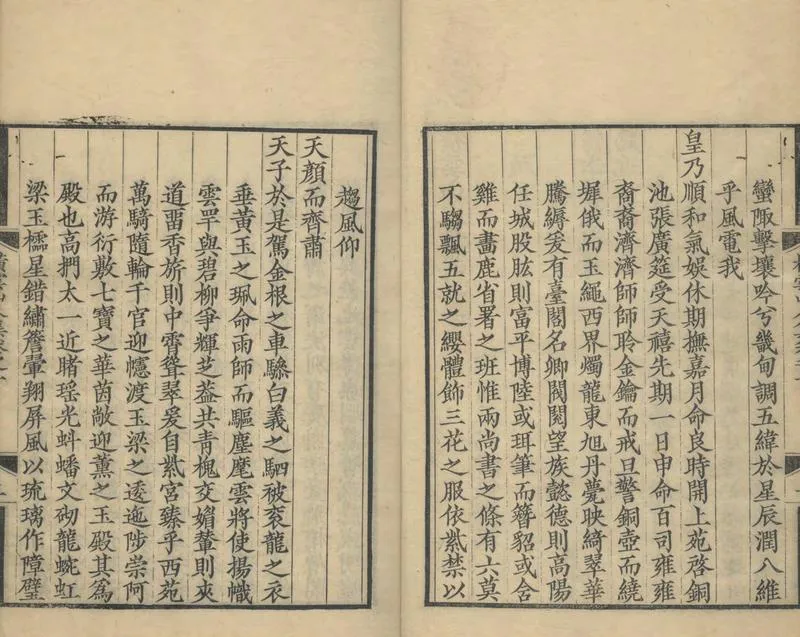 蠻陬擊壤吟兮畿甸調五緯於星辰潤八維
乎風電我
皇乃順和氣娛休期撫嘉月命良時開上苑啓銅
池張廣筵受天禧先期一日申命百司雍雍
裔裔濟濟師師聆金鑰而戒旦警銅壺而繞
墀俄而玉繩西界燭龍東旭丹甍映綺翠華
騰縟爰有臺閣名卿閥閱望族懿德則高陽
任城股肱則富平博陸或珥筆而簪貂或舍
雞而畫鹿省署之班惟兩尚書之條有六莫
不驂飄五就之纓體飾三花之服依紫禁以
趨風仰
天顏而齊肅
天子於是駕金根之車驂白義之駟被衮龍之衣
垂黃玉之珮命雨師而驅塵麾雲將使揚幟
雲罕與碧柳爭輝芝葢共青槐交媚輦則夾
道罶香旂則中霄聳翠爰自紫宮臻乎西苑
萬騎隨輪千官迎幰渡玉梁之逶迤陟崇阿
而游衍敷七寶之華茵敞迎薰之玉殿其爲
殿也高捫太一近睹瑶光蚪蟠文砌龍蜿虹
梁玉櫺星錯繡簷翬翔屏風以琉璃作障璧